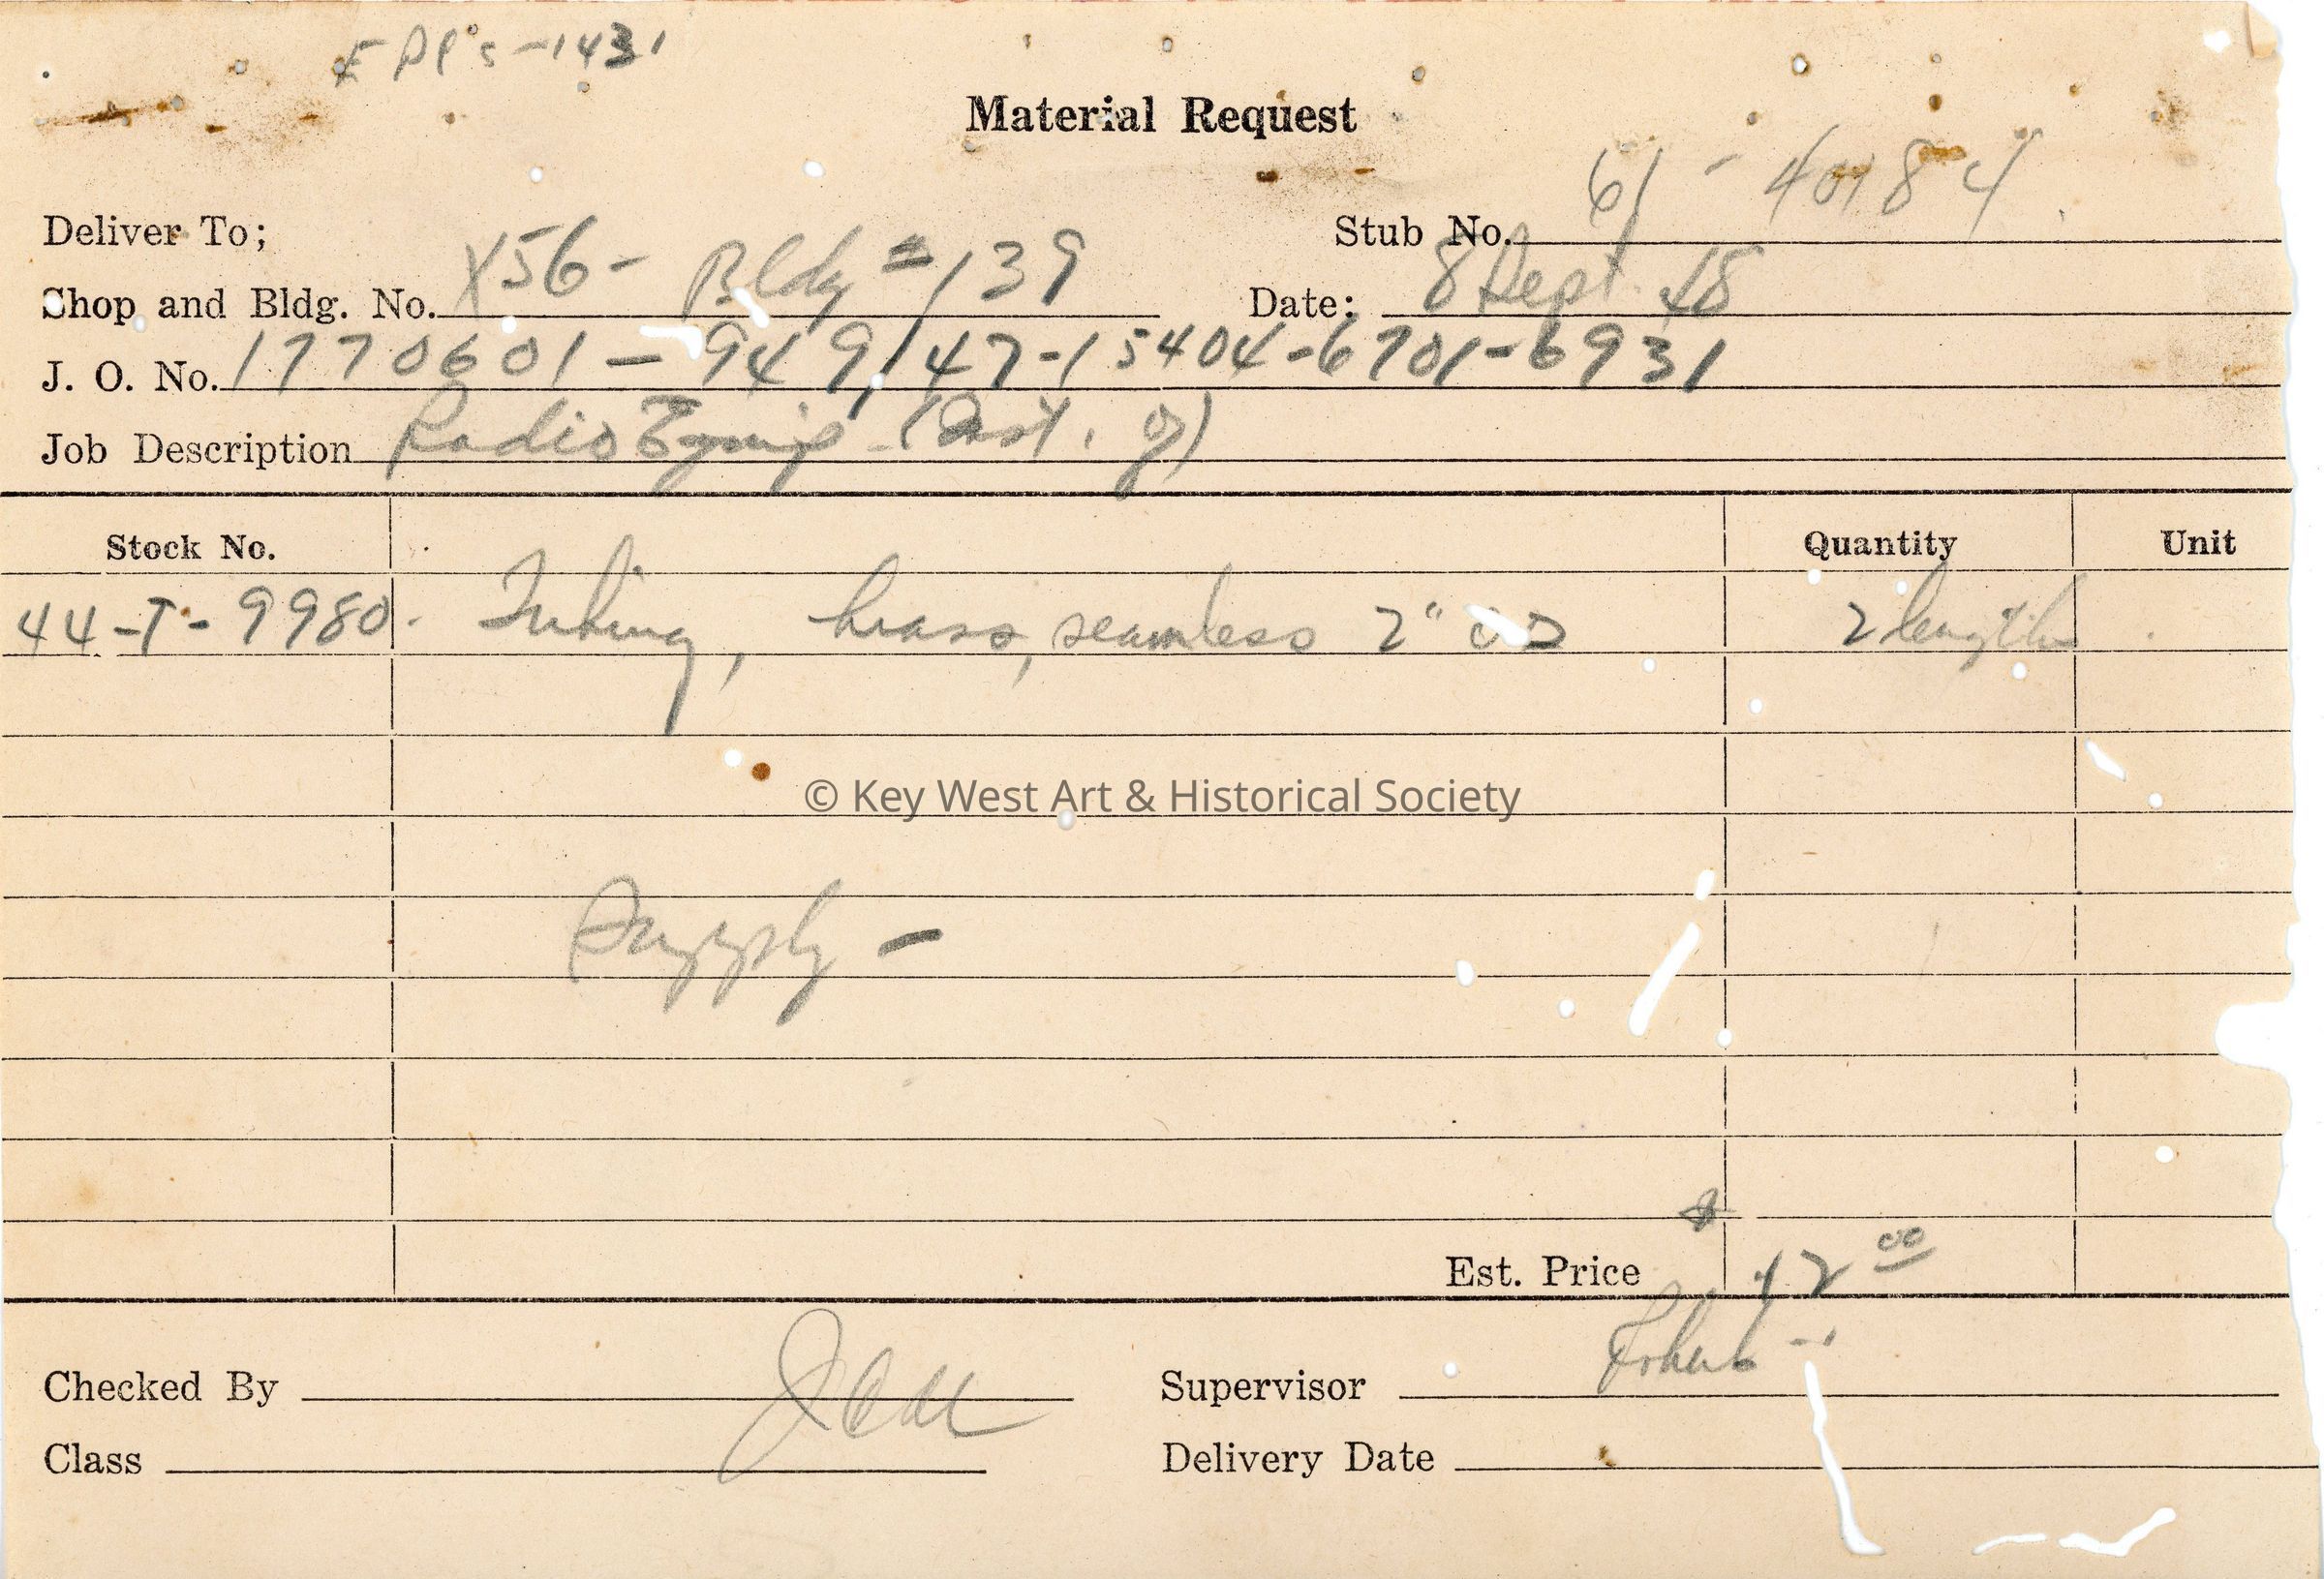 EDP's - 1431
Material Request
Stub No. 61 - 40184
Deliver To;
Shop and Bldg. No. X56 - Bldg # 139
Date: 8 Sept. 48
J. O. No. 1770601 - 949,147-15404-6701-6931
Job Description Radio Equip - (Inst. of)
Stock No. Quantity Unit
44-T-9980. Tubing, brass, seamless 2" OD 2 lengths
© Key West Art & Historical Society
Supply -
Est. Price $ 42 00
Checked By
Supervisor
Class
Delivery Date